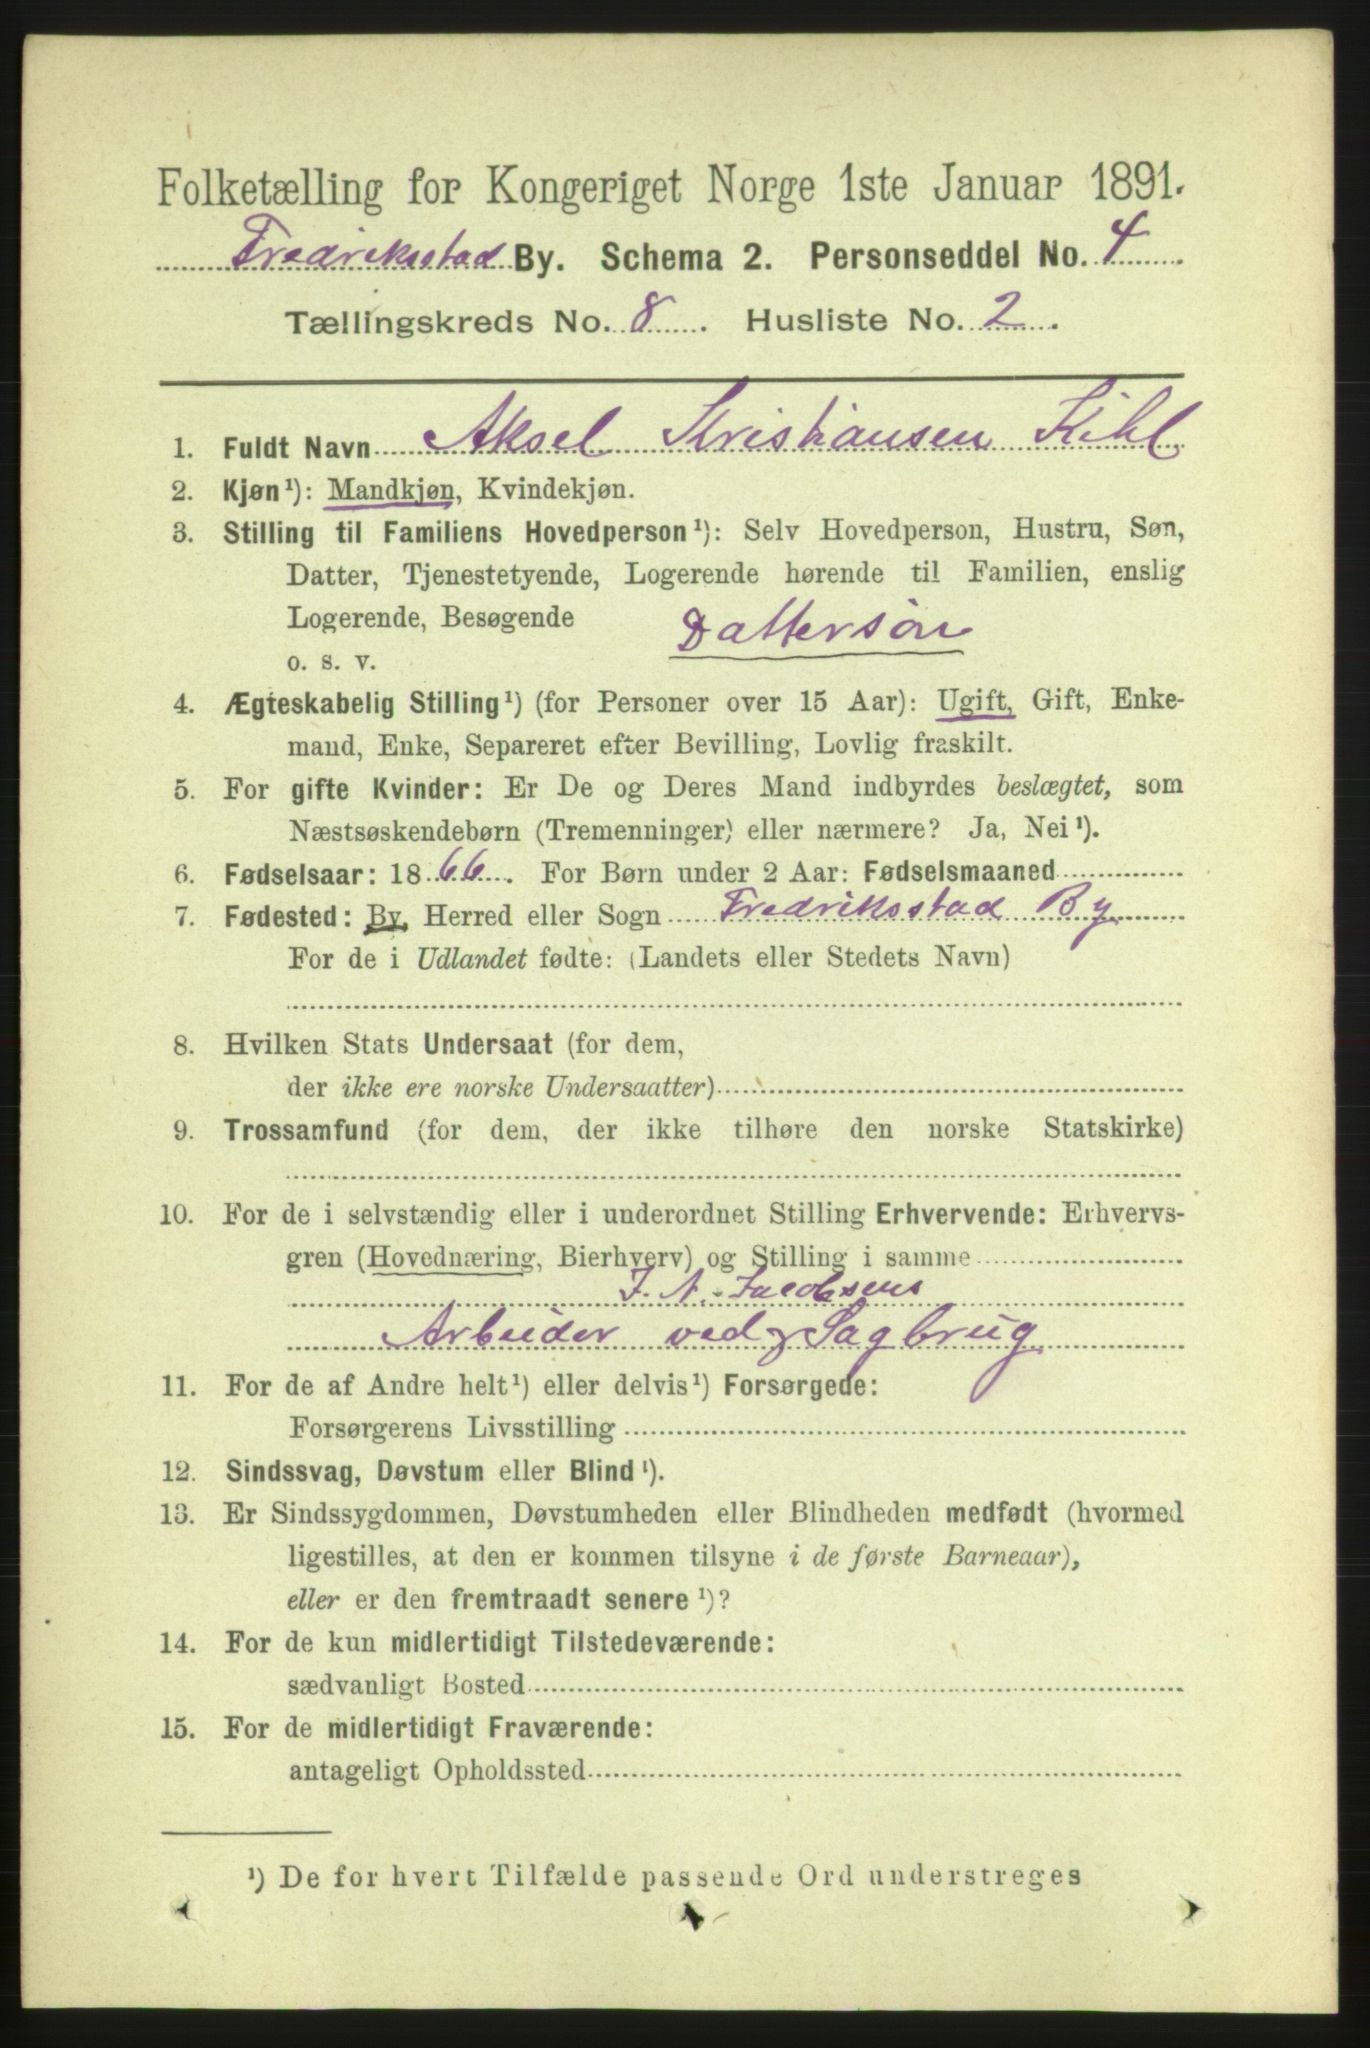 Folketælling for Kongeriget Norge 1ste Januar 1891.
Fredriksstad By. Schema 2. Personseddel No. 4
Tællingskreds No. 8. Husliste No. 2.
1. Fuldt Navn Aksel Kristiansen Kihl
2. Kjøn¹): Mandkjøn, Kvindekjøn.
3. Stilling til Familiens Hovedperson¹): Selv Hovedperson, Hustru, Søn,
Datter, Tjenestetyende, Logerende hørende til Familien, enslig
Logerende, Besøgende Dattersøn
o. s. v.
4. Ægteskabelig Stilling¹) (for Personer over 15 Aar): Ugift, Gift, Enke-
mand, Enke, Separeret efter Bevilling, Lovlig fraskilt.
5. For gifte Kvinder: Er De og Deres Mand indbyrdes beslægtet, som
Næstsøskendebørn (Tremenninger) eller nærmere? Ja, Nei¹).
6. Fødselsaar: 1866. For Børn under 2 Aar: Fødselsmaaned
7. Fødested: By, Herred eller Sogn Fredriksstad By
For de i Udlandet fødte: (Landets eller Stedets Navn)
8. Hvilken Stats Undersaat (for dem,
der ikke ere norske Undersaatter)
9. Trossamfund (for dem, der ikke tilhøre den norske Statskirke)
10. For de i selvstændig eller i underordnet Stilling Erhvervende: Erhvervs-
gren (Hovednæring, Bierhverv) og Stilling i samme
J. N. Jacobsens
Arbeider ved Sagbrug
11. For de af Andre helt¹) eller delvis¹) Forsørgede:
Forsørgerens Livsstilling
12. Sindssvag, Døvstum eller Blind¹).
13. Er Sindssygdommen, Døvstumheden eller Blindheden medfødt (hvormed
ligestilles, at den er kommen tilsyne i de første Barneaar),
eller er den fremtraadt senere¹)?
14. For de kun midlertidigt Tilstedeværende:
sædvanligt Bosted
15. For de midlertidigt Fraværende:
antageligt Opholdssted
¹) De for hvert Tilfælde passende Ord understreges